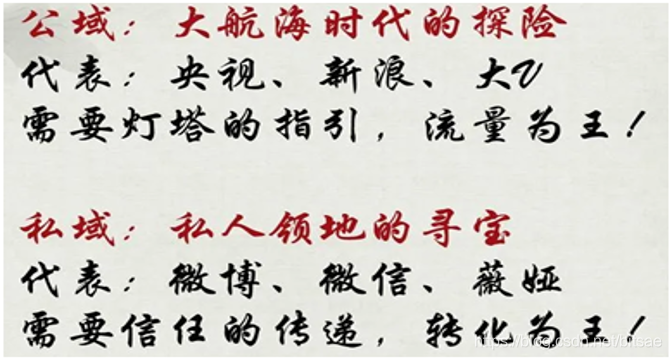 公域：大航海时代的探险
代表：央视、新浪、大V
需要灯塔的指引，流量为王！
私域：私人领地的寻宝
代表：微博、微信、薇娅
需要信任的传递，转化为王！
https://blog.csdn.net/bitsae